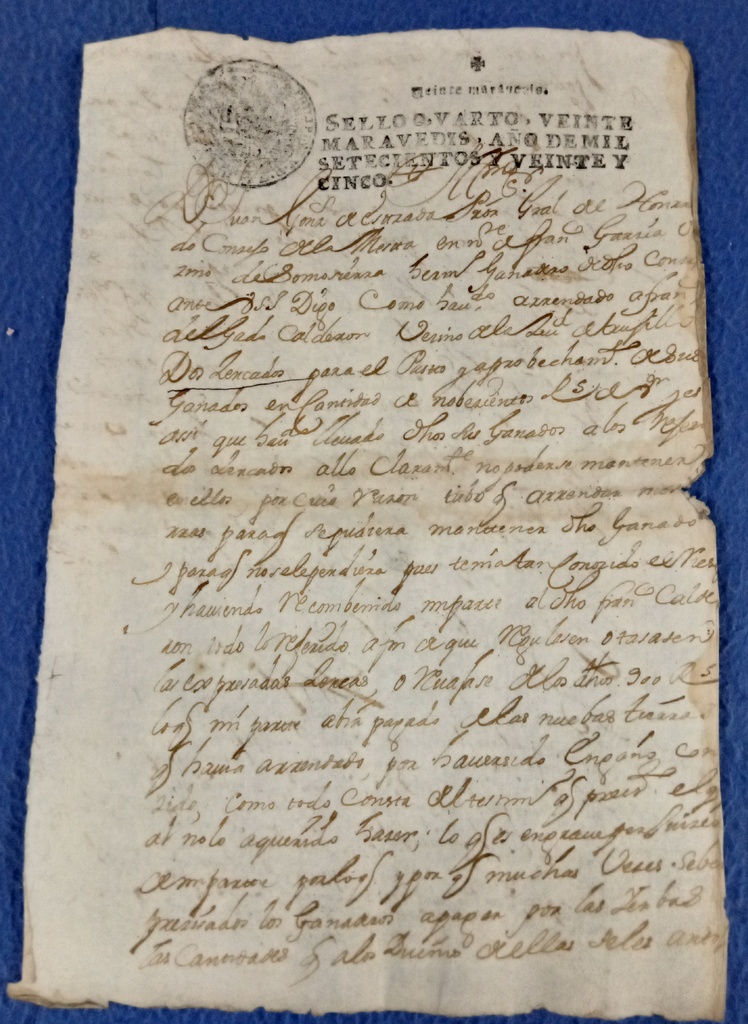 ✠
Veinte maravedis.
SELLO QVARTO, VEINTE
MARAVEDIS, AÑO DE MIL
SETECIENTOS Y VEINTE Y
CINCO.
Juan Gonz de estrada Pror Gral del Honrra
do Conzejo de la Mesta en ne de franco Garzia Ve
zino de Somosierra hermo Ganadero de dho Conz
ante VSS Digo Como havdo arrendado a fran
delgado Calderon Vezino de la Ciud de truxillo
Dos Zercados para el Pasto y aprobechamto de sus
Ganados en Cantidad de nobezientos Rs de Vn y es
assi que havdo llevado dhos sus Ganados a los Refer
dos Zercados allo Claramte no poderse mantener
en ellos por cuia razon tubo q arrendar
para q se pudiera mantener dho Ganado
y para q no se le perdiera pues tenia tan Conozido el Ries
y haviendo Recombenido mi parte al dho franco Calde
ron todo lo Referido a fin de que Regulesen o tasasen
las expresadas Zercas, o Revajase de los dhos 900 Rs
lo q mi parte abia pagado de las nuebas tierras
q havia arrendado, por haver sido Engaño co
zido, como todo Consta del testimo q presto el q
al no lo a querido hazer; lo q es en grave perjuizio
de mi parte por lo q y por q muchas Vezes se be
prezisados los Ganaderos a pagar por las Yerbas
las Cantidades q a los Dueños de ellas se les anto